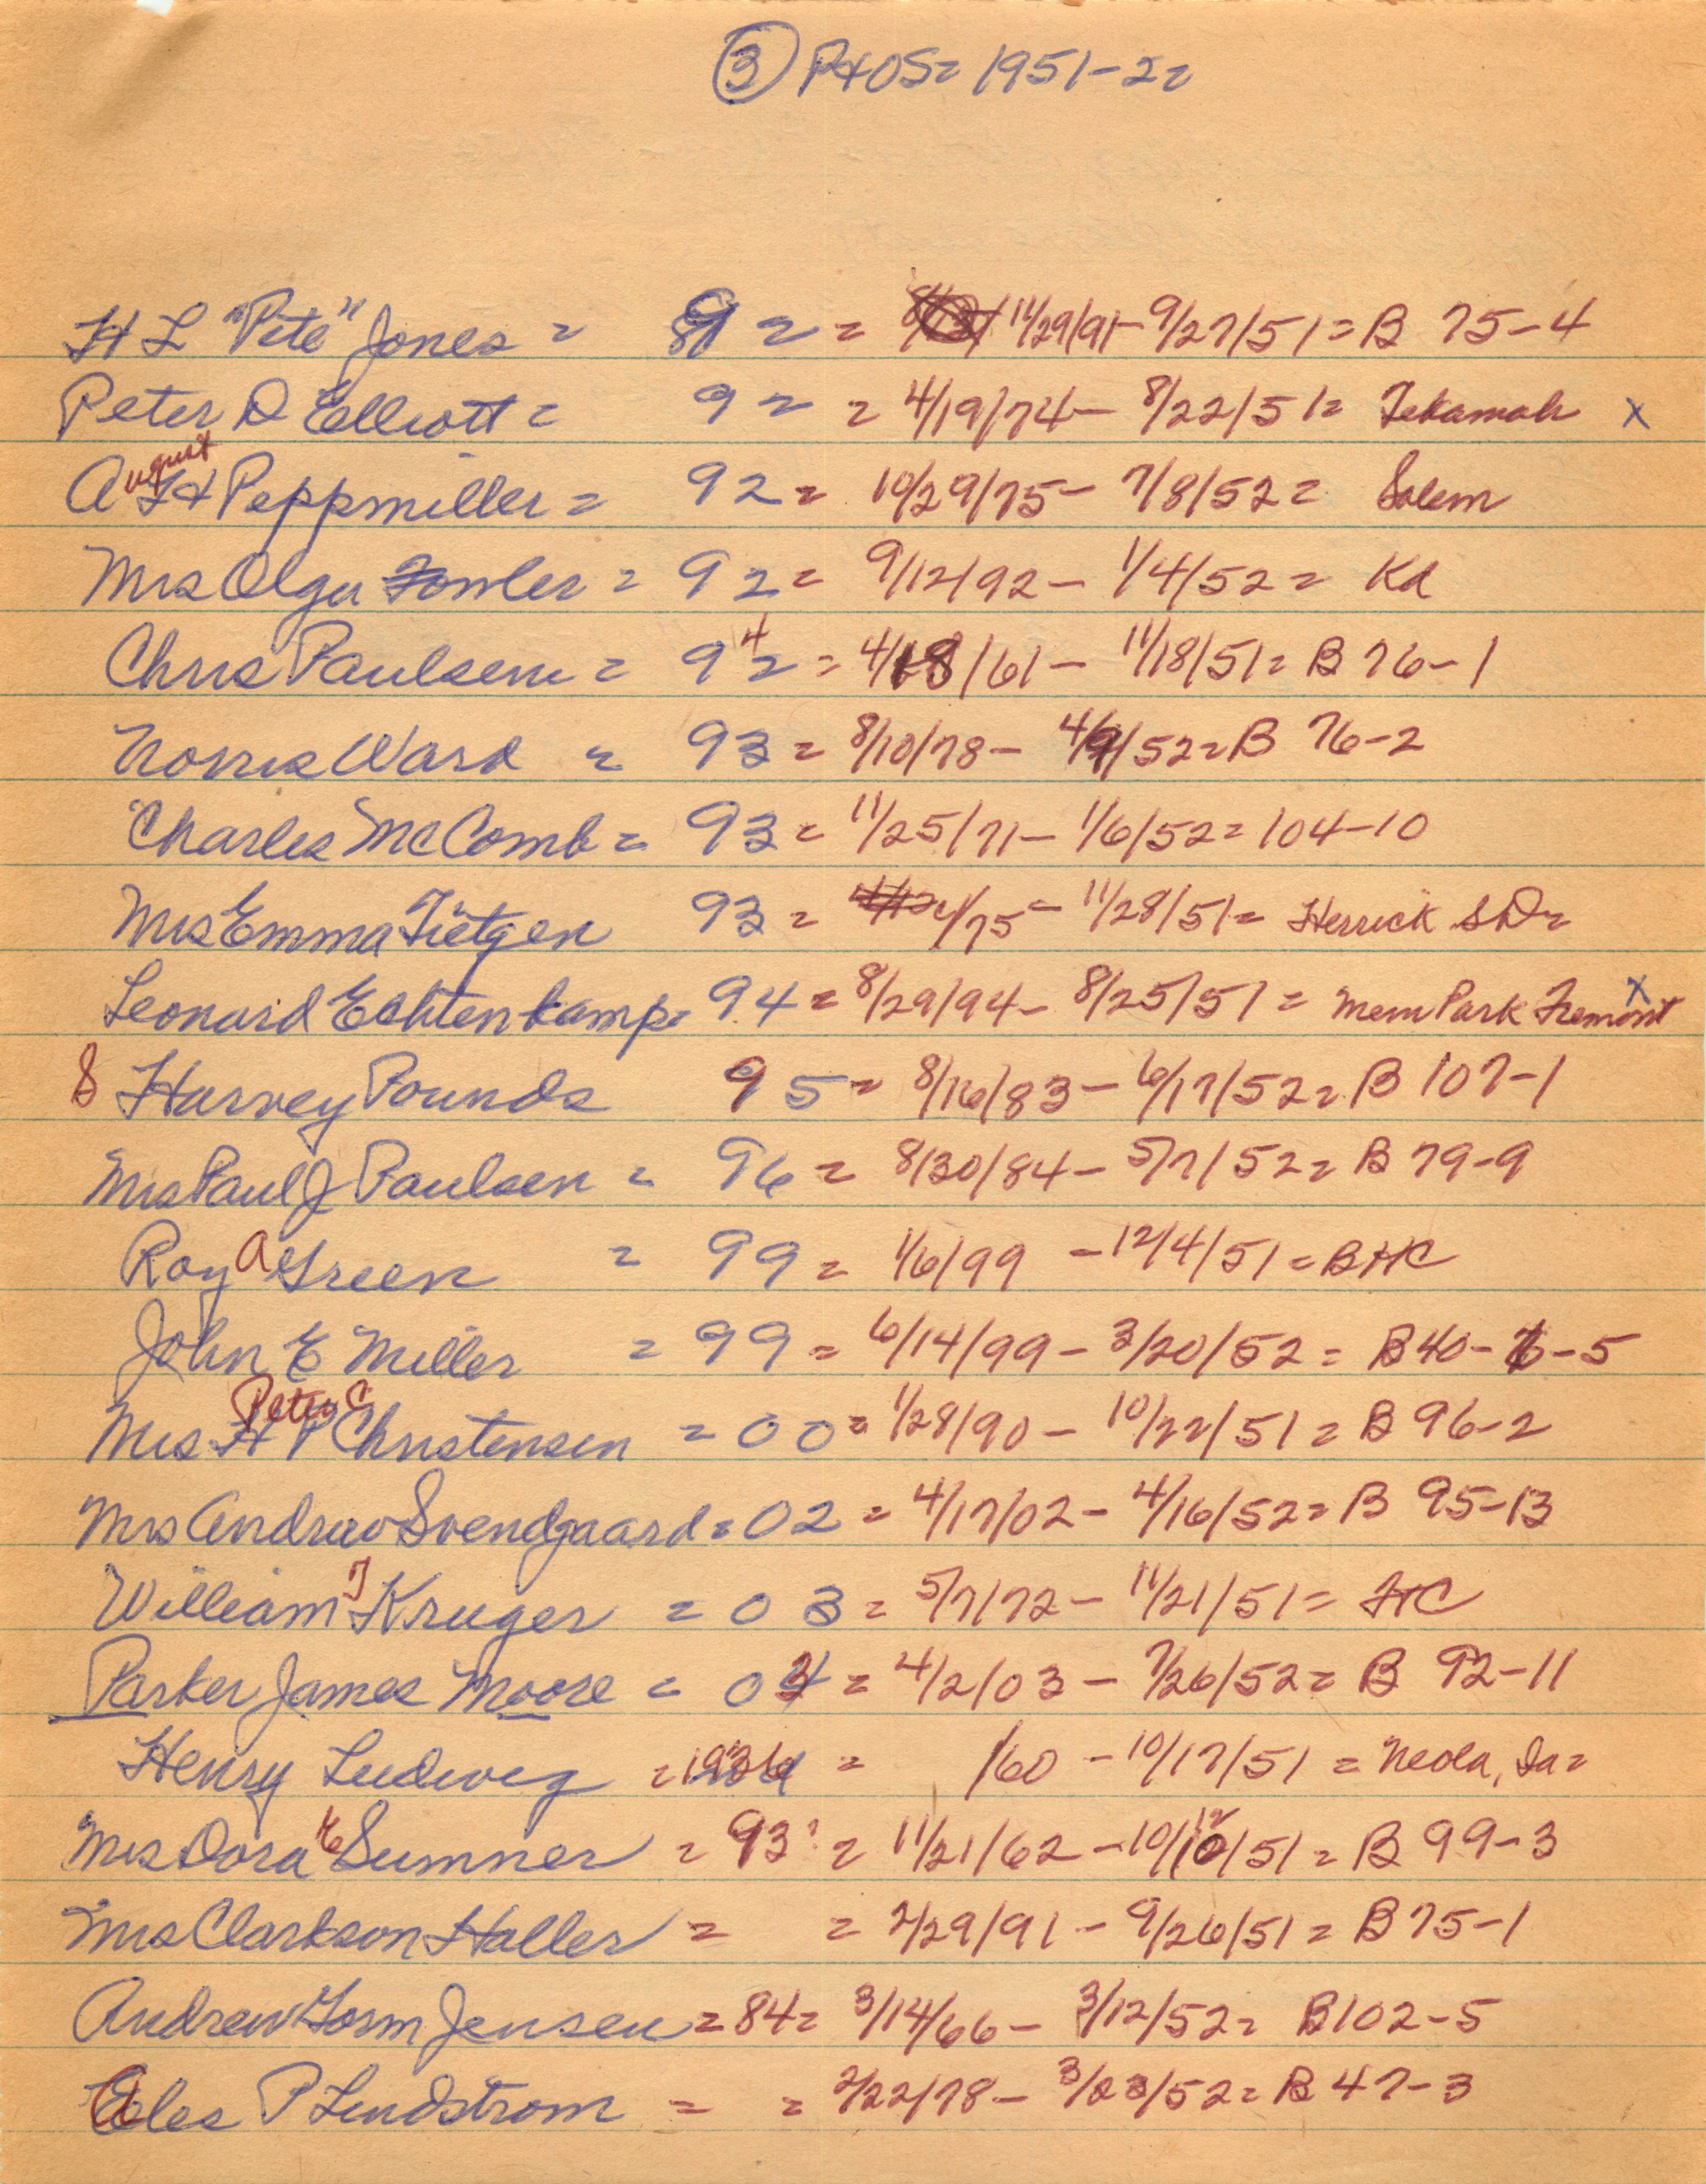 ③ P+OS= 1951-2=
H L "Pete" Jones = 92 = 11/29/91- 9/27/51 = B 75-4
Peter D Elliott = 92 = 4/19/74- 8/22/51= Tekamah x
August H Peppmiller = 92 = 10/29/75- 7/8/52 = Salem
Mrs Olga Fowler = 92 = 9/12/92- 1/4/52 = Kd
Chris Paulsen = 92 4 = 4/18/61- 11/18/51= B 76-1
Norris Ward = 93 = 8/10/78- 4/9/52= B 76-2
Charles McComb = 93 = 11/25/71- 1/6/52= 104-10
Mrs Emma Tietgen 93 = /75- 11/28/51= Herrick SD=
Leonard Echtenkamp= 94 = 8/29/94- 8/25/51 = Mem Park Fremont x
8 Harvey Pounds 95 = 8/16/83- 6/17/52= B 107-1
Mrs Paul J Paulsen = 96 = 8/30/84- 5/7/52= B 79-9
Roy A Green = 99 = 1/6/99 -12/4/51 = BHC
John E Miller = 99 = 6/14/99- 3/20/52 = B 40- 6-5
Mrs H P Peter C Christensen = 00 = 1/28/90- 10/22/51 = B 96-2
Mrs Andrew Svendgaard = 02 = 4/17/02- 4/16/52= B 95-13
William J Kruger = 03 = 5/7/72- 11/21/51= HC
Parker James Moore = 03 = 4/2/03- 7/26/52= B 92-11
Henry Ludwig = 1936 = /60 -10/17/51 = Neola, Ia=
Mrs Dora K Sumner = 93' = 11/21/62 -10/12/51 = B 99-3
Mrs Clarkson Haller = = 2/29/91- 9/26/51 = B 75-1
Andrew Gorm Jensen = 84= 3/14/66- 3/12/52= B 102-5
P Lindstrom = = 2/22/78- 3/23/52= B 47-3